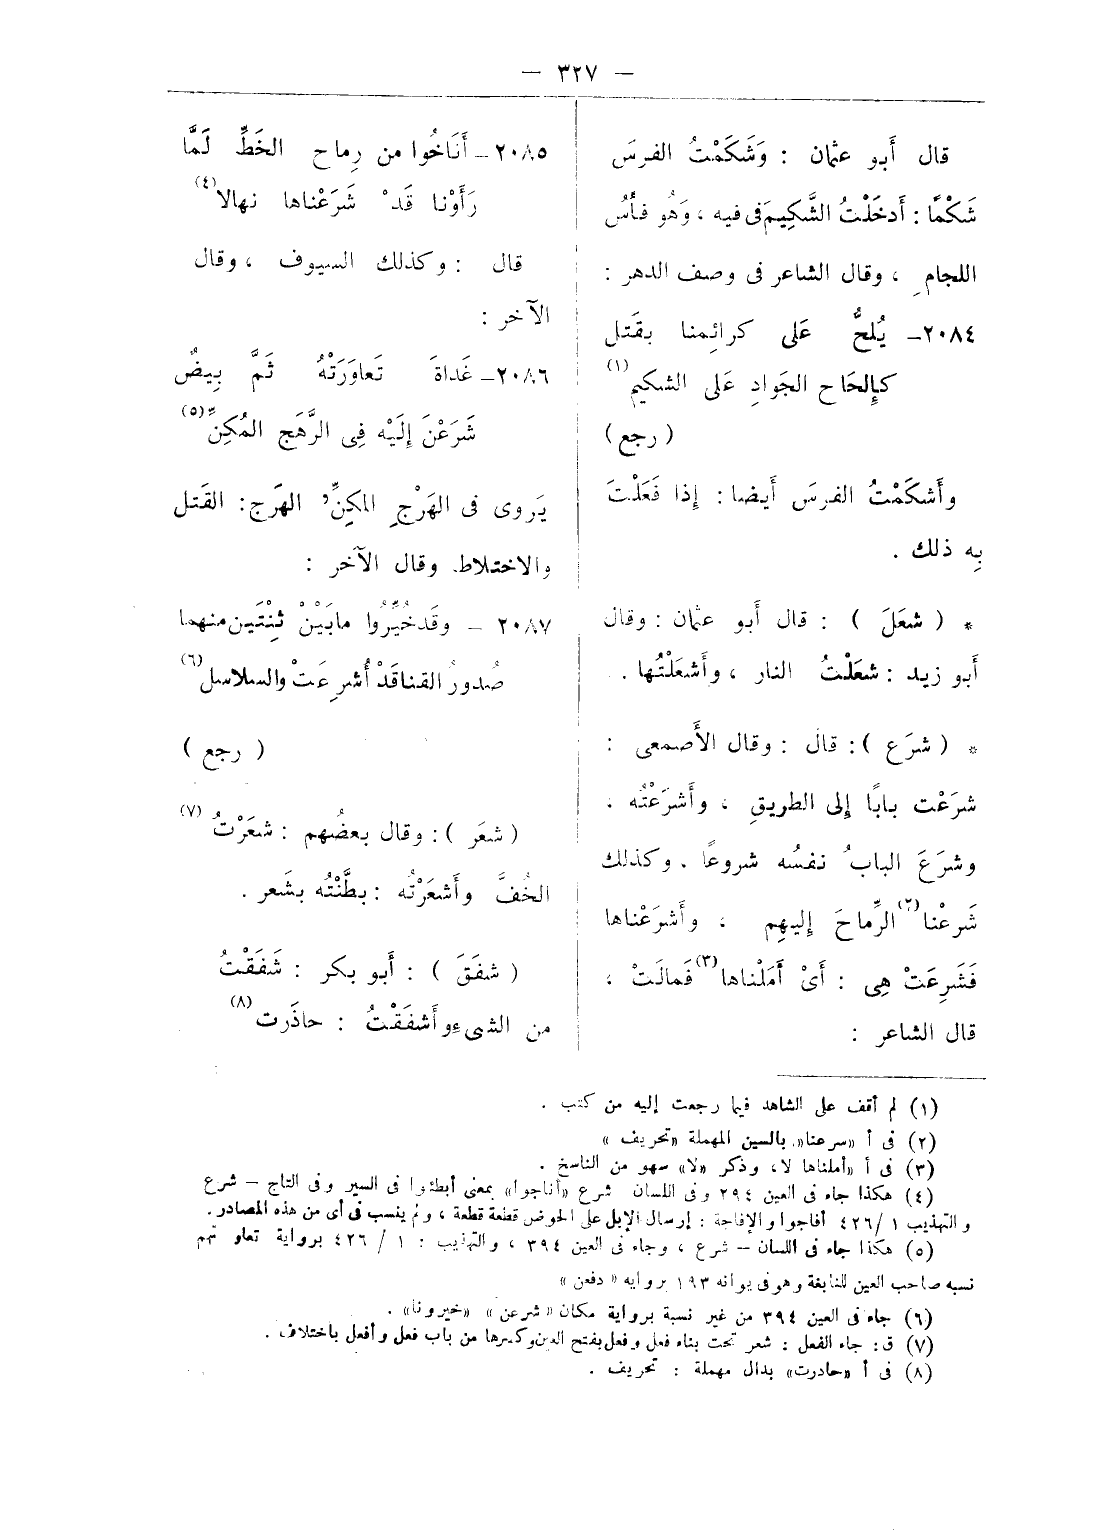 — ٣٢٧ —
قال أَبو عثمان : وَشَكَمْتُ الفرسَ
شَكْمًا : أَدخَلْتُ الشَّكِيمَ فى فيه ، وَهُو فأْسُ
اللجامِ ، وقال الشاعر فى وصف الدهر :
٢٠٨٤ – يُلحُّ عَلى كرائِمنا بقَتل
كإِلحَاح الجَوادِ عَلى الشكيم (١)
( رجع )
وأَشكَمْتُ الفرسَ أَيضا : إِذا فَعَلْتَ
بِه ذلك .
* ( شعَلَ ) : قال أَبو عثمان : وقال
أَبو زيد : شعَلْتُ النار ، وأَشعَلْتُها .
* ( شرَع ) : قال : وقال الأَصمعى :
شرَعْت بابًا إِلى الطريقِ ، وأَشرَعْتُه ،
وشرَعَ البابُ نفسُه شروعًا . وكذلك
شَرعْنا (٢) الرِّماحَ إِليهِم ، وأَشرَعْناها
فَشَرعَتْ هِى : أَىْ أَمَلْناها (٣) فَمالَتْ ،
قال الشاعر :
٢٠٨٥ – أَنَاخُوا من رِماح الخَطِّ لَمَّا
رَأَوْنا قَدْ شَرَعْناها نهالا (٤)
قال : وكذلك السيوف ، وقال
الآخر :
٢٠٨٦ – غَداةَ تَعاوَرَتْهُ ثَمَّ بِيضٌ
شَرَعْنَ إِلَيْه فِى الرَّهَج المُكِنِّ (٥)
يَروى فى الهَرْجِ المكِنِّ الهَرج : القَتل
والاختلاط . وقال الآخر :
٢٠٨٧ – وقَد خُيِّرُوا مابَيْنْ ثِنْتَين منهما
صُدورُ القناقَدْ أُشرِعَتْ والسلاسل (٦)
( رجع )
( شعَر ) : وقال بعضُهم : شعَرْتُ (٧)
الخُفَّ وأَشعَرْتُه : بطَّنْتُه بشَعر .
( شفَقَ ) : أَبو بكر : شَفَقْتُ
من الشىءِ وأَشفَقْتُ : حاذَرت (٨)
(١) لم أقف على الشاهد فيما رجعت إليه من كتب .
(٢) فى أ «سرعنا» بالسين المهملة «تحريف»
(٣) فى أ «أملناها لا، وذكر «لا» سهو من الناسخ .
(٤) هكذا جاء فى العين ٢٩٤ وفى اللسان شرع «أناجوا» بمعنى أبطئوا فى السير وفى التاج – شرع
والتهذيب ١ / ٤٢٦ أفاجوا والإفاجة : إرسال الإبل على الحوض قطعة قطعة ، ولم ينسب فى أى من هذه المصادر .
(٥) هكذا جاء فى اللسان – شرع ، وجاء فى العين ٣٩٤ ، والتهذيب : ١ / ٤٢٦ برواية تعاو تهم
نسبه صاحب العين للنابغة وهو فى يوانه ١٩٣ بروايه «دفعن»
(٦) جاء فى العين ٣٩٤ من غير نسبة برواية مكان «شرعن» «خيرونا» .
(٧) ق : جاء الفعل : شعر تحت بناء فعل وفعل بفتح العين وكسرها من باب فعل وأفعل باختلاف .
(٨) فى أ «حادرت» بدال مهملة : تحريف .